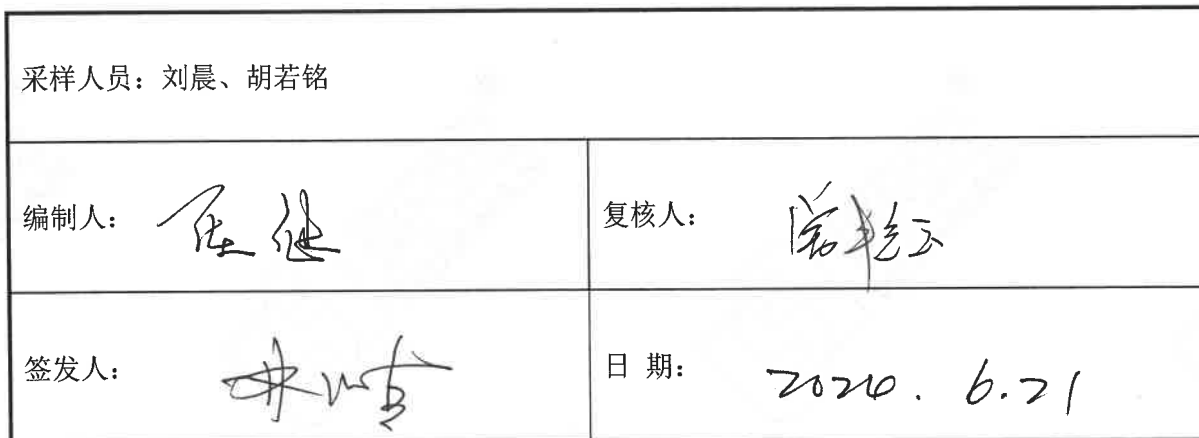 采样人员：刘晨、胡若铭
编制人：
复核人：
签发人：
日 期：2024.6.21